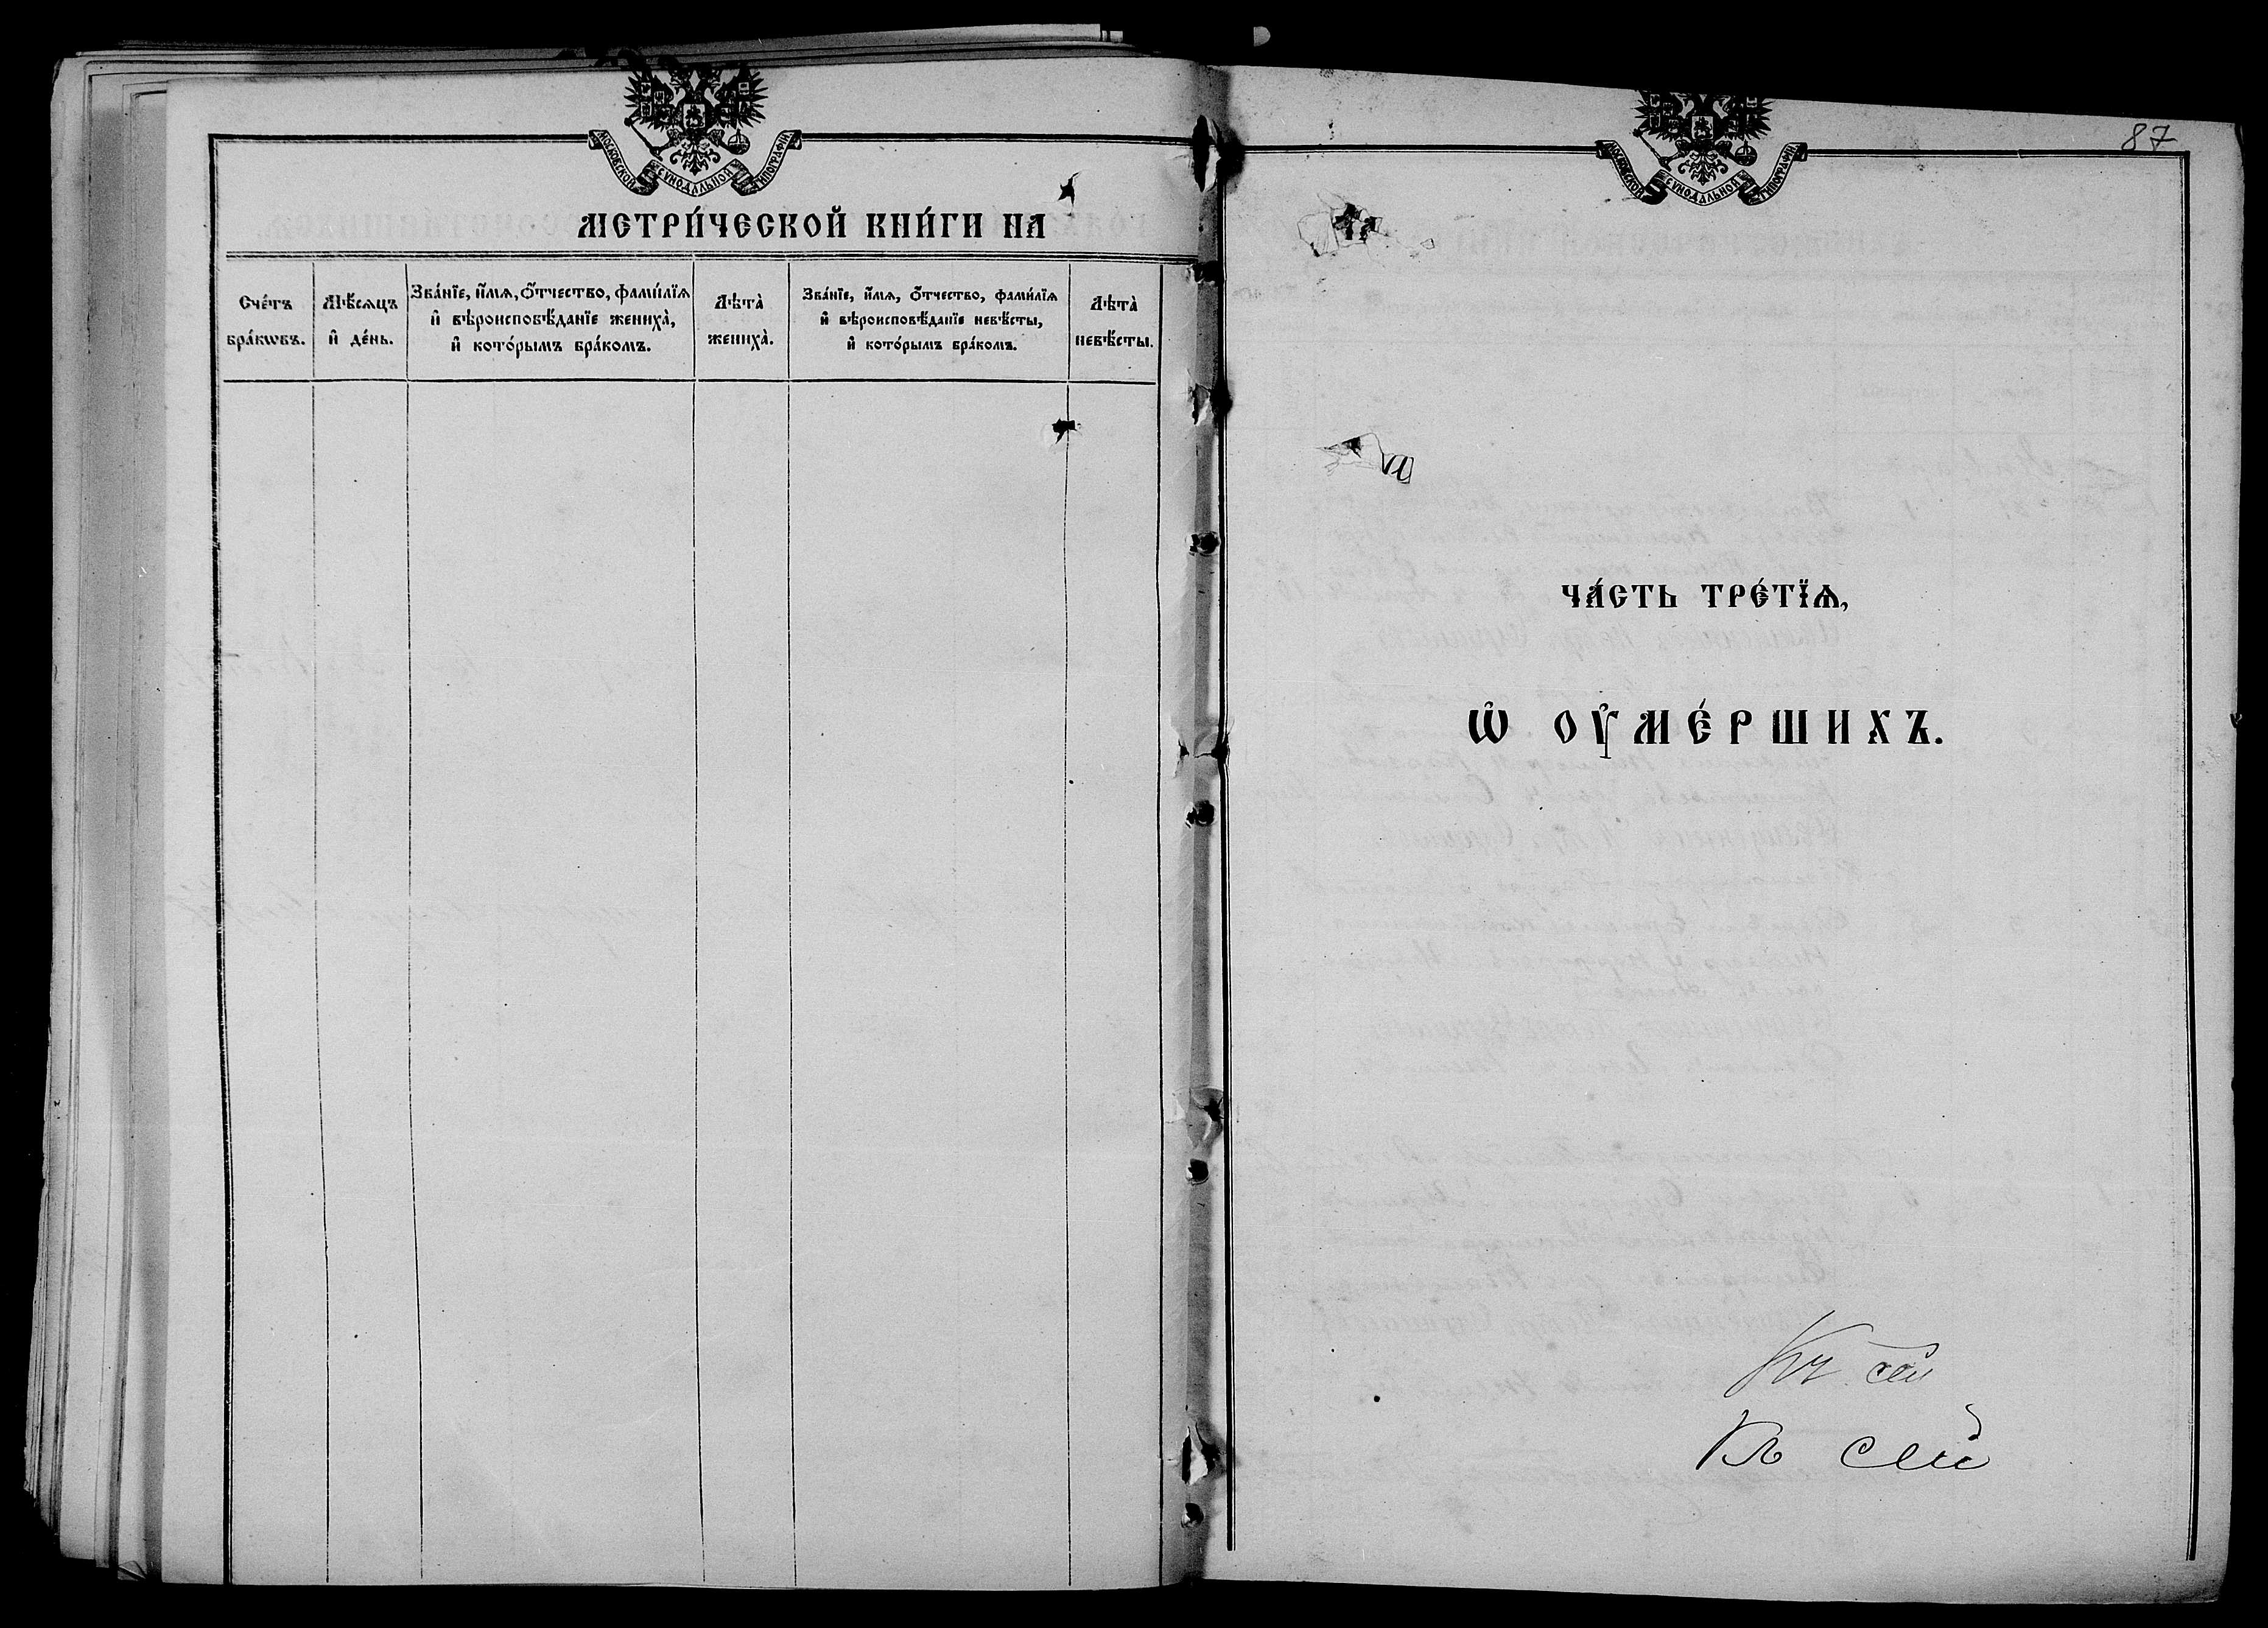 МОСКОВСКОЙ СУНОДАЛЬНОЙ ТИПОГРАФІИ
МЕТРИ́ЧЕСКОЙ КНИ́ГИ НА
Сче́тъ
бра́кѡвъ.
Мѣ́сѧцъ
и҆ де́нь.
Зва́нїе, и҆́мѧ, ѻ҆́тчество, фами́лїѧ
и҆ вѣроисповѣ́данїе жениха̀,
и҆ кото́рымъ бра́комъ.
Лѣта̀
жениха̀.
Зва́нїе, и҆́мѧ, ѻ҆́тчество, фами́лїѧ
и҆ вѣроисповѣ́данїе невѣ́сты,
и҆ кото́рымъ бра́комъ.
Лѣта̀
невѣ́сты.
МОСКОВСКОЙ СУНОДАЛЬНОЙ ТИПОГРАФІИ
87
ЧА́СТЬ ТРЕ́ТЇѦ,
Ѡ҆ ОУ҆МЕ́РШИХЪ.
Въ сей